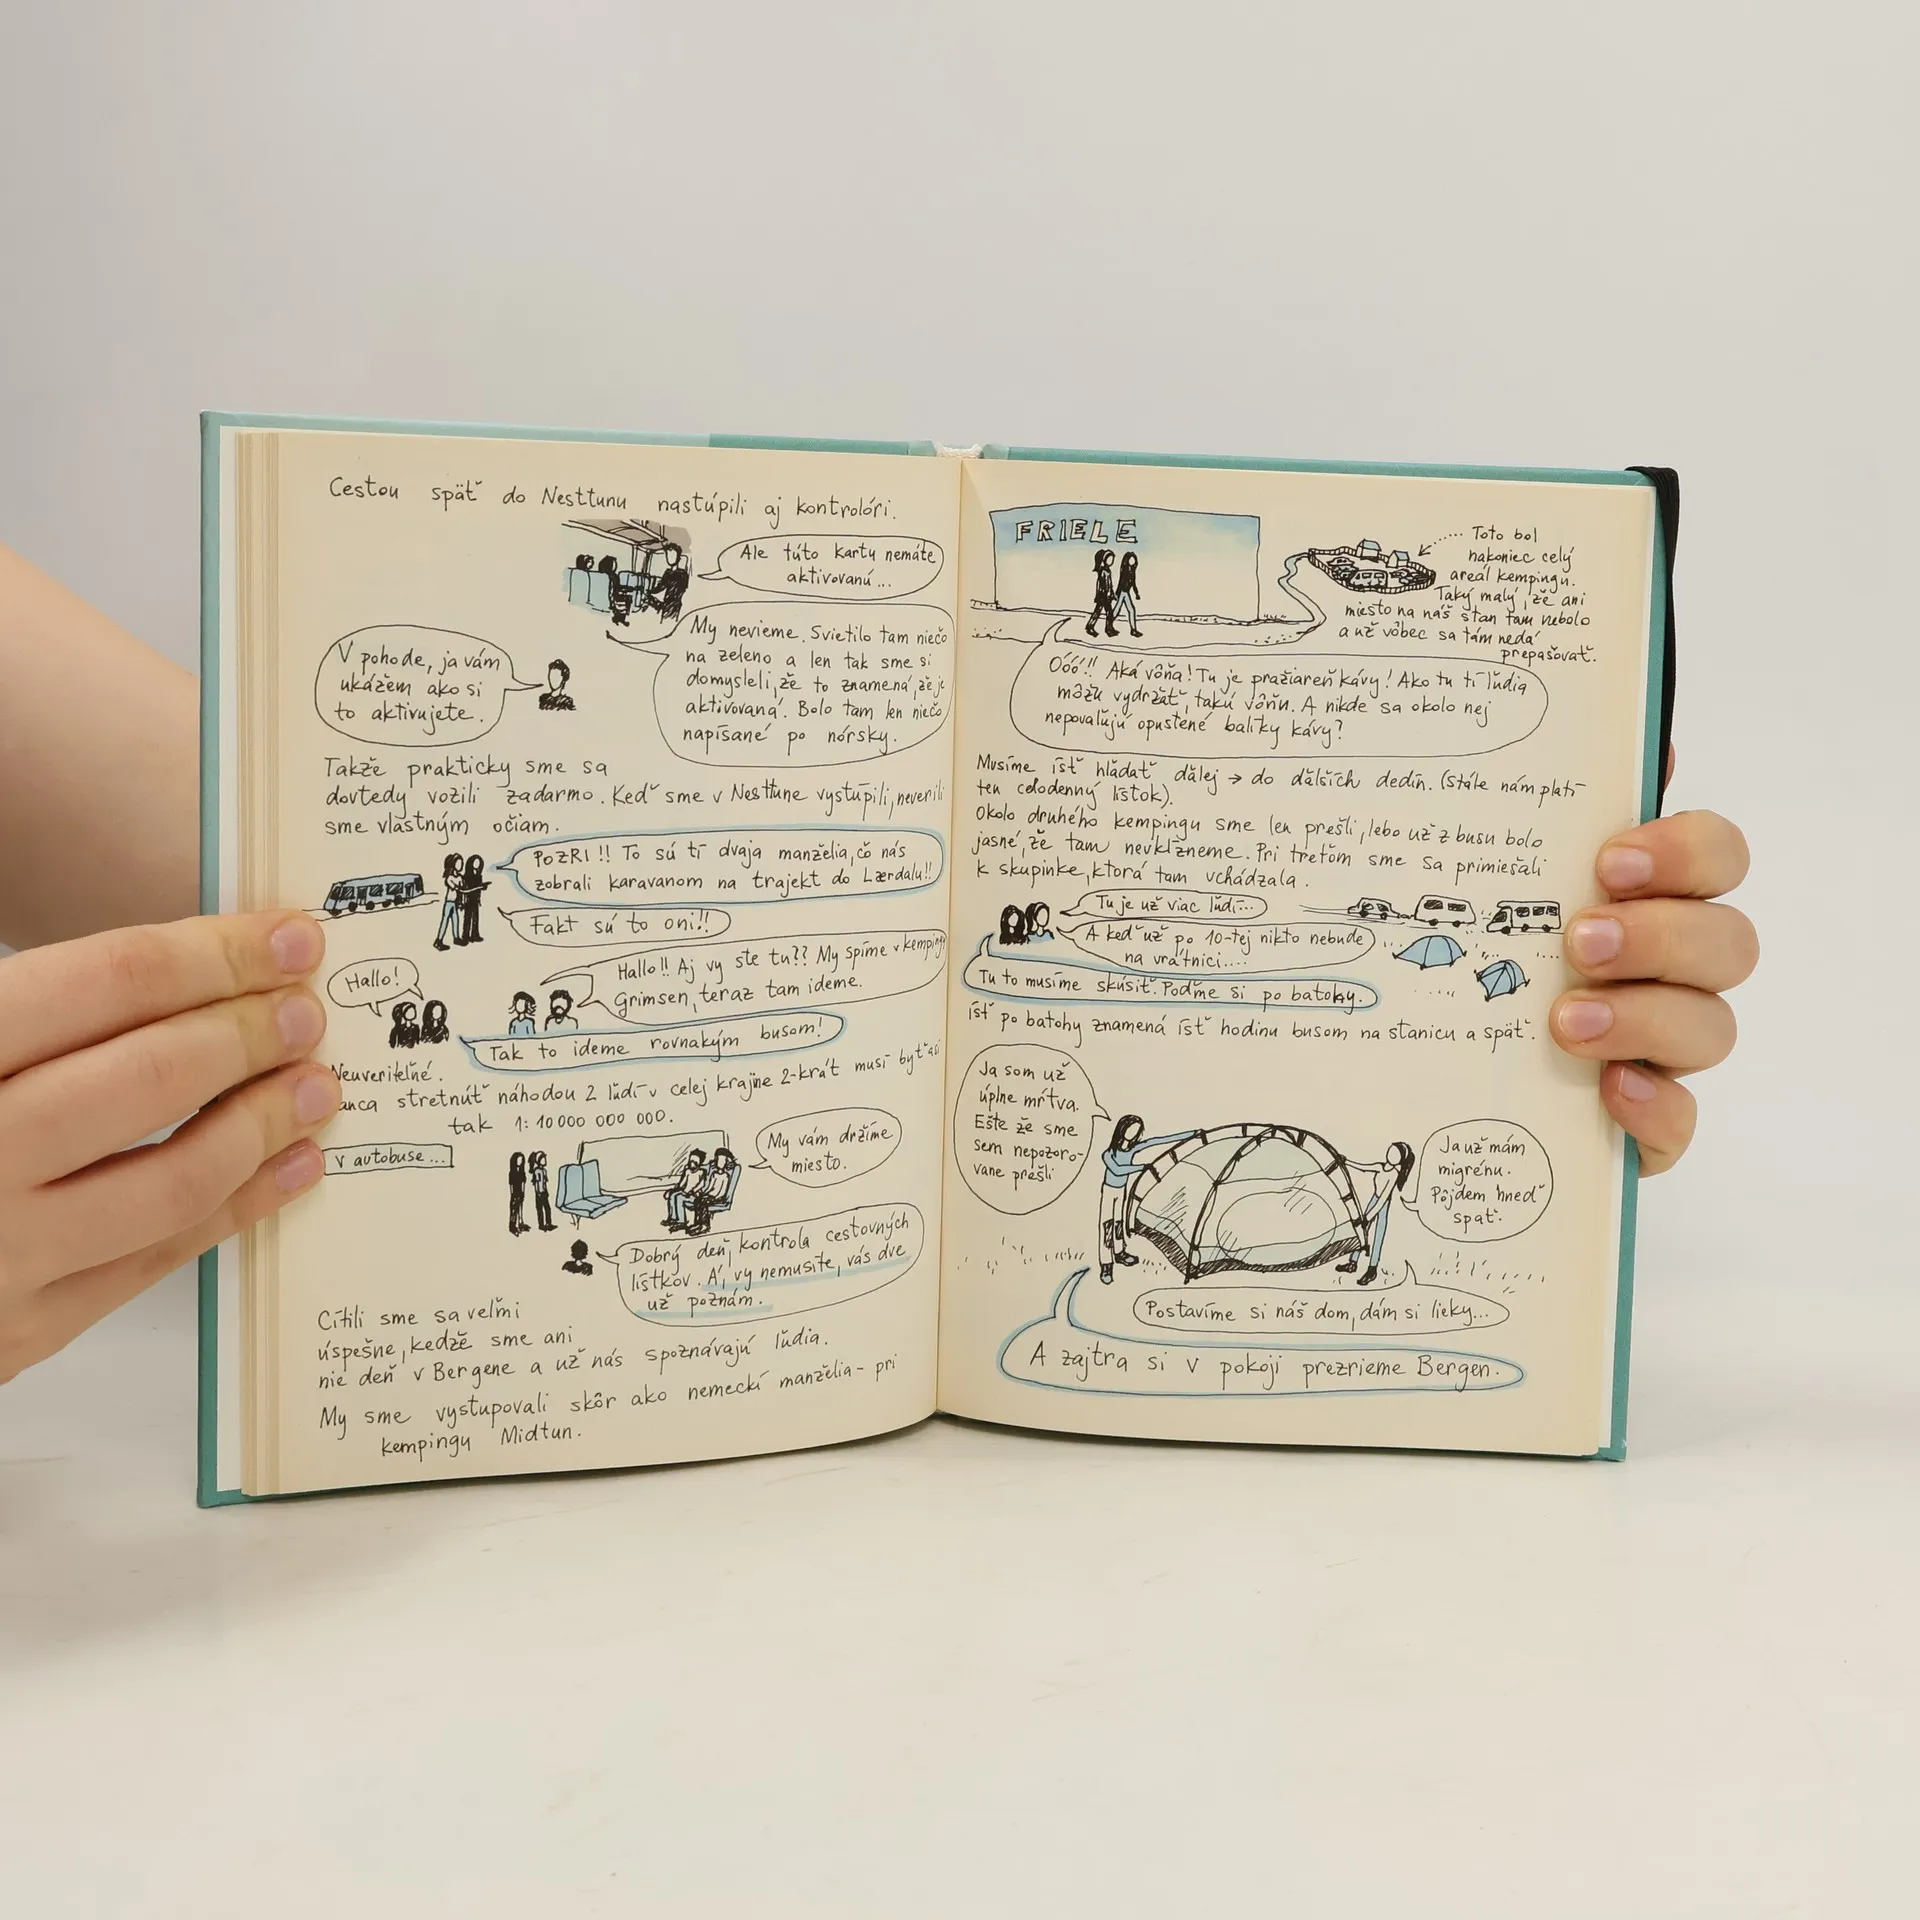 Cestou späť do Nesttunu nastúpili aj kontrolóri.
Ale túto kartu nemáte
aktivovanú...
My nevieme. Svietilo tam niečo
na zeleno a len tak sme si
domysleli, že to znamená, že je
aktivovaná. Bolo tam len niečo
napísané po nórsky.
V pohode, ja vám
ukážem ako si
to aktivujete.
Takže prakticky sme sa
dovtedy vozili zadarmo. Keď sme v Nesttune vystúpili, neverili
sme vlastným očiam.
POZRI!! To sú tí dvaja manželia, čo nás
zobrali karavanom na trajekt do Lærdalu!!
Fakt sú to oni!!
Hallo!
Hallo!! Aj vy ste tu?? My spíme v kempingu
Grimsen, teraz tam ideme.
Tak to ideme rovnakým busom!
Neuveriteľné.
anca stretnúť náhodou 2 ľudí v celej krajine 2-krát musí byť asi
tak 1:10 000 000 000.
V autobuse...
My vám držíme
miesto.
Dobrý deň, kontrola cestovných
lístkov. Á, vy nemusíte, vás dve
už poznám.
Cítili sme sa veľmi
úspešne, kedže sme ani
nie deň v Bergene a už nás spoznávajú ľudia.
My sme vystupovali skôr ako nemeckí manželia - pri
kempingu Midtun.
FRIELE
Toto bol
nakoniec celý
areál kempingu.
Taký malý, že ani
miesto na náš stan tam nebolo
a už vôbec sa tam nedá
prepašovať.
Óóó!! Aká vôňa! Tu je pražiareň kávy! Ako tu tí ľudia
môžu vydržať, takú vôňu. A nikde sa okolo nej
nepovaľujú opustené balíky kávy?
Musíme ísť hľadať ďalej → do ďalších dedín. (Stále nám platí
ten celodenný lístok).
Okolo druhého kempingu sme len prešli, lebo už z busu bolo
jasné, že tam nevkĺzneme. Pri treťom sme sa primiešali
k skupinke, ktorá tam vchádzala.
Tu je už viac ľudí...
A keď už po 10-tej nikto nebude
na vrátnici....
Tu to musíme skúsiť. Poďme si po batohy.
Ísť po batohy znamená ísť hodinu busom na stanicu a späť.
Ja som už
úplne mŕtva.
Ešte že sme
sem nepozoro-
vane prešli
Ja už mám
migrénu.
Pôjdem hneď
spať.
Postavíme si náš dom, dám si lieky...
A zajtra si v pokoji prezrieme Bergen.